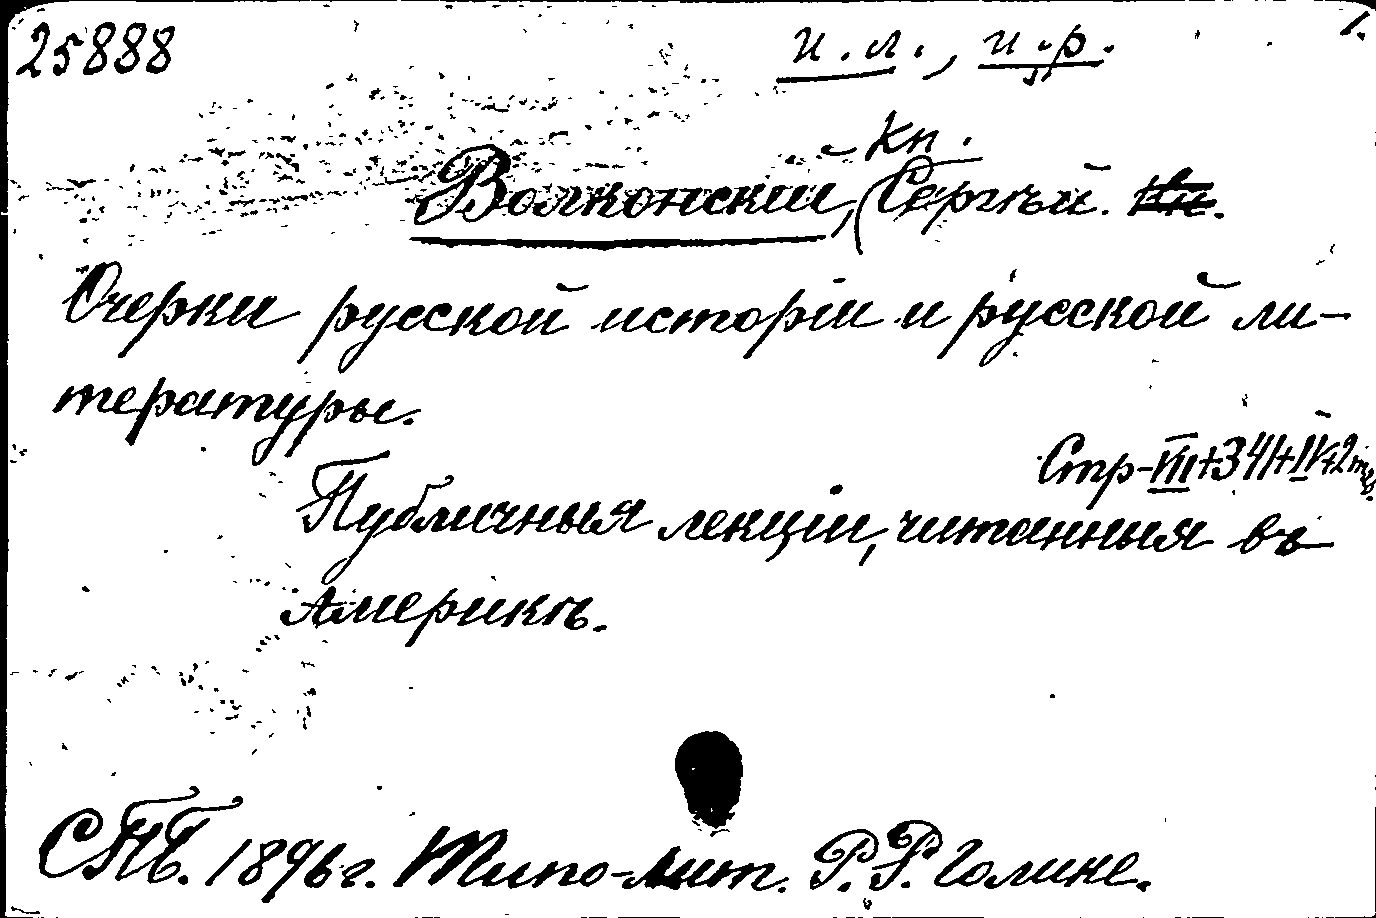 25888
и.л., и.р.
1.
Кн.
Волконскій, (Сергѣй.
Очерки русской исторіи и русской ли-
тературы.
Стр-VIII+341+IV+2
Публичныя лекціи, читанныя въ
Америкѣ.
СПБ. 1896 г. Типо-лит. Р. Р. Голике.